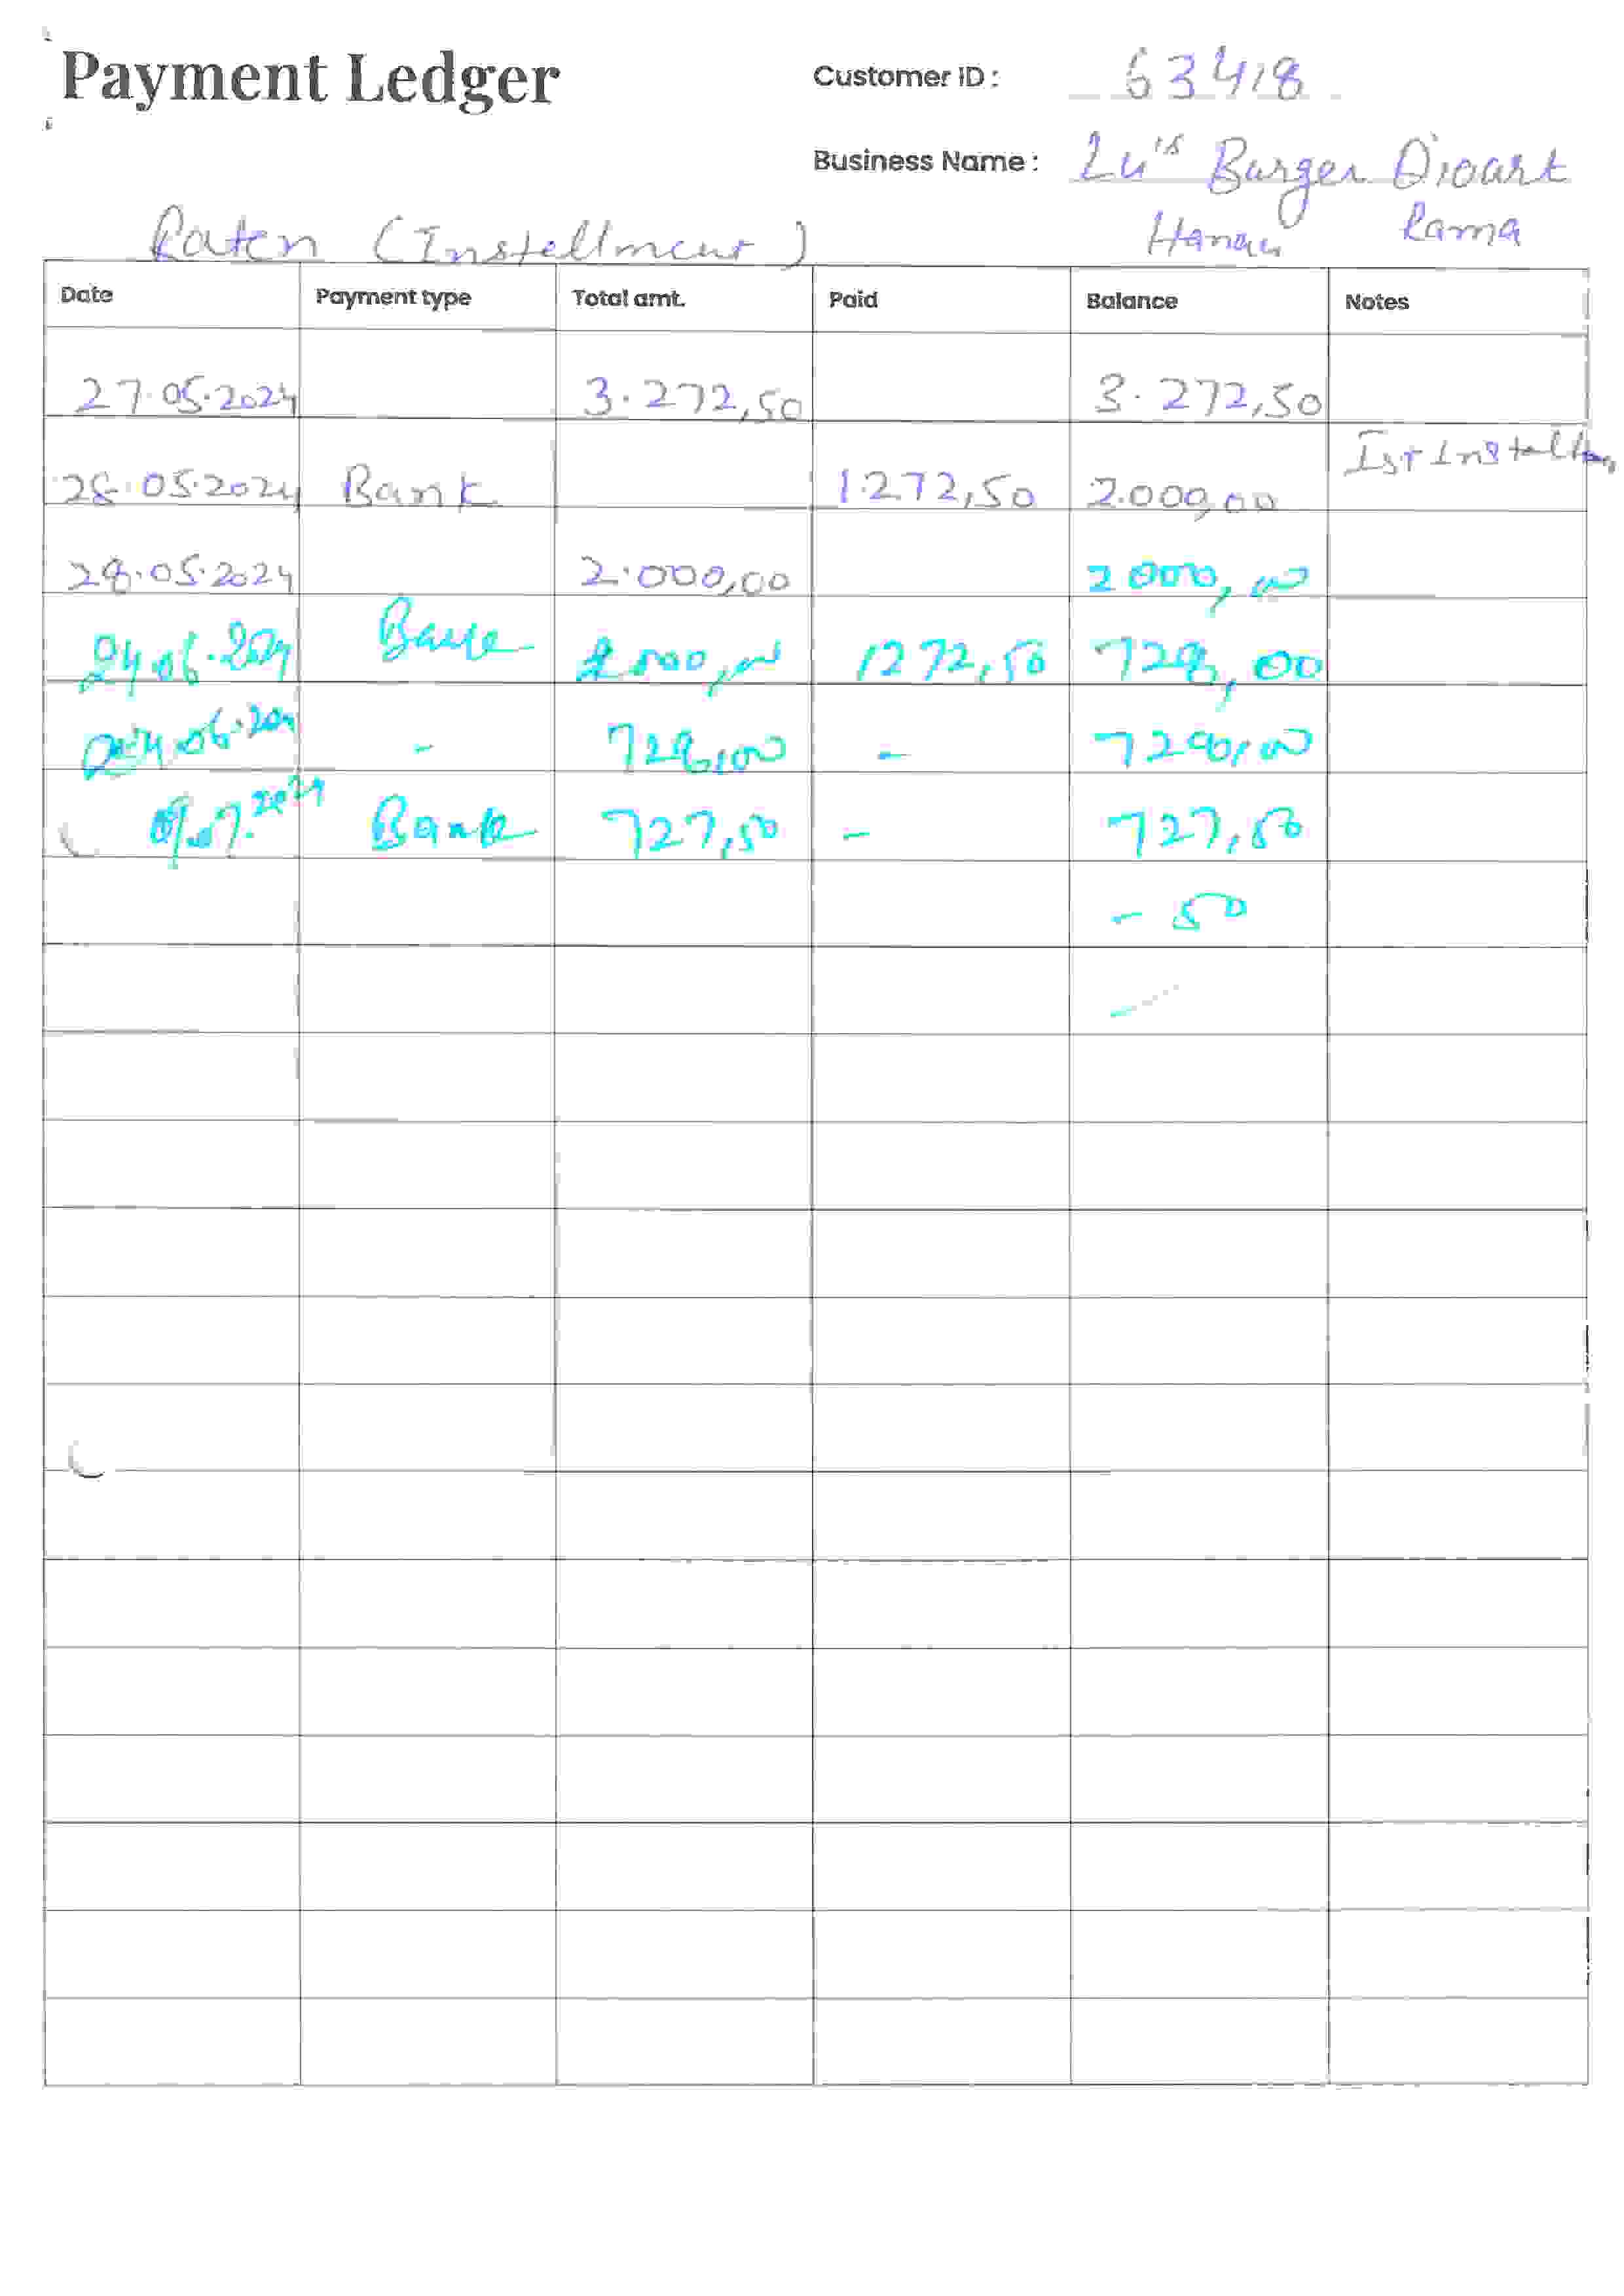 Payment Ledger
Customer ID : 63418
Business Name : Lu's Burger
Hanau Rama
Raten (Installment)
Date Payment type Total amt. Paid Balance Notes
27.05.2024 3.272,50 3.272,50
28.05.2024 Bank 1.272,50 2.000,00 Ist
28.05.2024 2.000,00 2000,00
24.06.2024 Bank 2000,00 1272,50 728,00
24.06.2024 - 728,00 - 728,00
07.2024 Bank 727,50 - 727,50
- 50